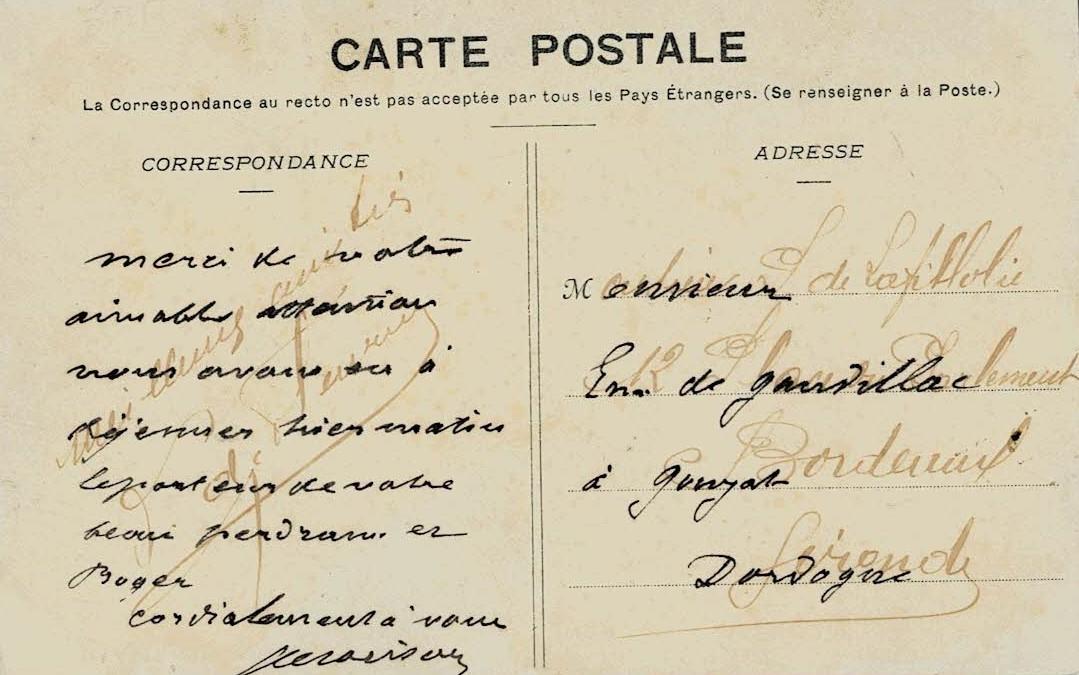 CARTE POSTALE
La Correspondance au recto n'est pas acceptée par tous les Pays Étrangers. (Se renseigner à la Poste.)
CORRESPONDANCE
ADRESSE
merci de votre
aimable attention
nous avons eu à
déjeuner hier matin
le porteur de votre
beau perdreau et
Roger
cordialement à vous
Monsieur
Em. de Gaudillac
à
Dordogne
L de
12
Bordeaux
Gironde